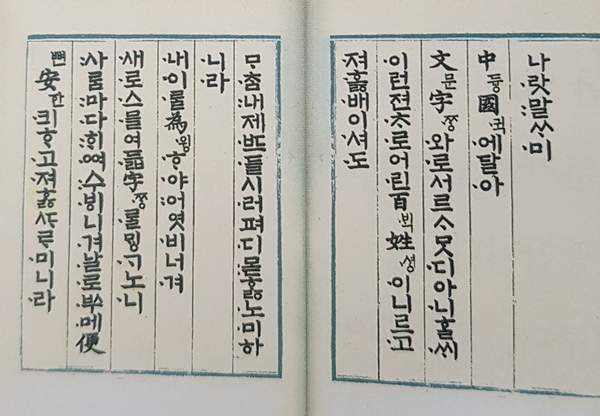 나랏말ᄊᆞ미
中듕國귁에달아
文문字ᄍᆞᆼ와로서르ᄉᆞᄆᆞᆺ디아니ᄒᆞᆯᄊᆡ
이런젼ᄎᆞ로어린百ᄇᆡᆨ姓셔ᇰ이니르고
져ᄒᆞᇙ배이셔도
ᄆᆞᄎᆞᆷ내제ᄠᅳ들시러펴디몯ᄒᆞᇙ노미하
니라
내이ᄅᆞᆯ為윙ᄒᆞ야어엿비너겨
새로스믈여듧字ᄍᆞᆼᄅᆞᆯᄆᆡᇰᄀᆞ노니
사ᄅᆞᆷ마다ᄒᆡᅇᅧ수ᄫᅵ니겨날로ᄡᅮ메便
뼌安ᅙᅡᆫ킈ᄒᆞ고져ᄒᆞᇙᄯᆞᄅᆞ미니라